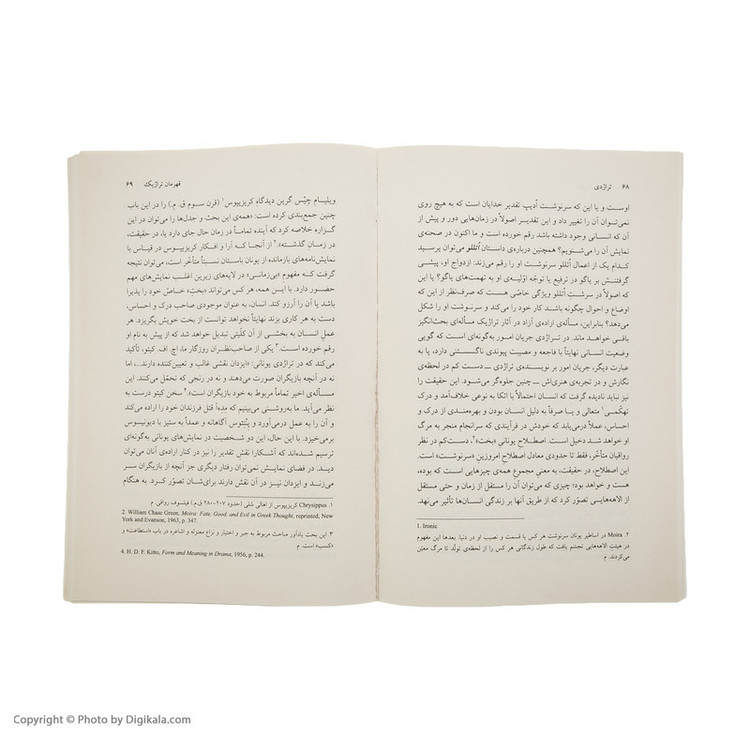 ۶۸ تراژدی
اوست و یا این که سرنوشت اُدیپ تقدیر خدایان است که به هیچ روی
نمی‌توان آن را تغییر داد و این تقدیر اصولاً در زمان‌هایی دور و پیش از
آن که انسانی وجود داشته باشد رقم خورده است و ما اکنون در صحنه‌ی
نمایش آن را می‌شنویم؟ همچنین درباره‌ی داستان اُتللو می‌توان پرسید
کدام یک از اعمال اُتللو سرنوشت او را رقم می‌زند: ازدواج او، پیشی
گرفتنش بر یاگو در ترفیع یا توجّه اوّلیه‌ی او به تهمت‌های یاگو؟ یا این
که اصولاً در سرشتِ اُتللو ویژگی خاصّی هست که صرف‌نظر از این که
اوضاع و احوال چگونه باشد کار خود را می‌کند و سرنوشت او را شکل
می‌دهد؟ بنابراین، مسأله‌ی اراده‌ی آزاد در آثار تراژیک مسأله‌ای بحث‌انگیز
باقی خواهد ماند. در تراژدی جریان امور به‌گونه‌ای است که گویی
وضعیت انسانی نهایتاً با فاجعه و مصیبت پیوندی ناگسستنی دارد، یا به
عبارت دیگر، جریان امور بر نویسنده‌ی تراژدی ــ دست کم در لحظه‌ی
نگارش و در تجربه‌ی هنری‌اش ــ چنین جلوه‌گر می‌شود. این حقیقت را
نیز نباید نادیده گرفت که انسان احتمالاً با اتکا به نوعی خلاف‌آمد و درک
تهکّمی۱ متعالی و یا صرفاً به دلیل انسان بودن و بهره‌مندی از درک و
احساس، عملاً درمی‌یابد که خودش در فرآیندی که سرانجام منجر به مرگ
او خواهد شد دخیل است. اصطلاح یونانی «بخت»۲، دست‌کم در نظر
رواقیان متأخّر، فقط تا حدودی معادل اصطلاح امروزینِ «سرنوشت» است.
این اصطلاح، در حقیقت، به معنیِ مجموع همه‌ی چیزهایی است که بوده،
هست و خواهد بود؛ چیزی که می‌توان آن را مستقل از زمان و حتی مستقل
از الاهه‌هایی تصوّر کرد که از طریق آنها بر زندگی انسان‌ها تأثیر می‌نهد.
1. Ironic
۲. Moira در اساطیر یونان سرنوشت هر کس یا قسمت و نصیب او در دنیا. بعدها این مفهوم
در هیئتِ الاهه‌هایی تجسّم یافت که طول زندگانی هر کس را از لحظه‌ی تولّد تا مرگ معیّن
می‌کردند. م.
قهرمان تراژیک ۶۹
ویلیام چِیْس گرین دیدگاه کریزیپوس۱ (قرن سوم ق.م.) را در این باب
چنین جمع‌بندی کرده است: «همه‌ی این بحث و جدل‌ها را می‌توان در این
گزاره خلاصه کرد که آینده تماماً در زمان حال جای دارد یا، در حقیقت،
در زمان گذشته»؛۲ از آنجا که آرا و افکار کریزیپوس در قیاس با
نمایش‌نامه‌های بازمانده از یونان باستان نسبتاً متأخّر است، می‌توان نتیجه
گرفت کـه مفهوم «بی‌زمانی» در لایه‌های زیرین اغلب نمایش‌های مهم
حضور دارد. با این همه، هر کس می‌تواند «بخت» خاصّ خود را پذیرا
باشد یا آن را آرزو کند. انسان، به عنوان موجودی صاحب درک و احساس،
دست به هر کاری بزند نهایتاً نخواهد توانست از بخت خویش بگریزد. هر
عمل انسان به بخشی از آن کلّیتی تبدیل خواهد شد که از پیش به نام او
رقم خورده است.۳ یکی از صاحب‌نظران روزگار ما، اچ. اف. کیتو، تأکید
می‌کند که در تراژدی یونانی: «ایزدان نقشی غالب و تعیین‌کننده دارند...، اما
نه در آنچه بازیگران صورت می‌دهند و نه در رنجی که تحمّل می‌کنند. این
مسأله‌ی اخیر تماماً مربوط به خود بازیگران است».۴ سخن کیتو درست به
نظر می‌آید. ما به‌روشنی می‌بینیم که مِدِهآ قتل فرزندان خود را اراده می‌کند
و آن را به عمل درمی‌آورد و پِنْتِئوس آگاهانه و عمداً به ستیز با دیونیوس
برمی‌خیزد. با این حال، این دو شخصیت در نمایش‌های یونانی به‌گونه‌ای
ترسیم شده‌اند که آشکارا نقش تقدیر را نیز در کنار اراده‌ی آنان می‌توان
دید. در فضای نمایش نمی‌توان رفتار دیگری جز آنچه از بازیگران سر
می‌زند و ایزدان نیز در آن نقش دارند برای‌شان تصوّر کرد. به هنگام
۱. Chrysippus کریزیپوس از اهالی سُلی (حدود ۲۰۷-۲۸۰ ق.م.) فیلسوف رواقی. م.
2. William Chase Green, Moira: Fate, Good, and Evil in Greek Thought, reprinted, New
York and Evanson, 1963, p. 347.
۳. این بحث یادآور مباحث مربوط به جبر و اختیار و نزاع معتزله و اشاعره در باب «استطاعت» و
«کسب» است. م.
4. H. D. F. Kitto, Form and Meaning in Drama, 1956, p. 244.
Copyright © Photo by Digikala.com